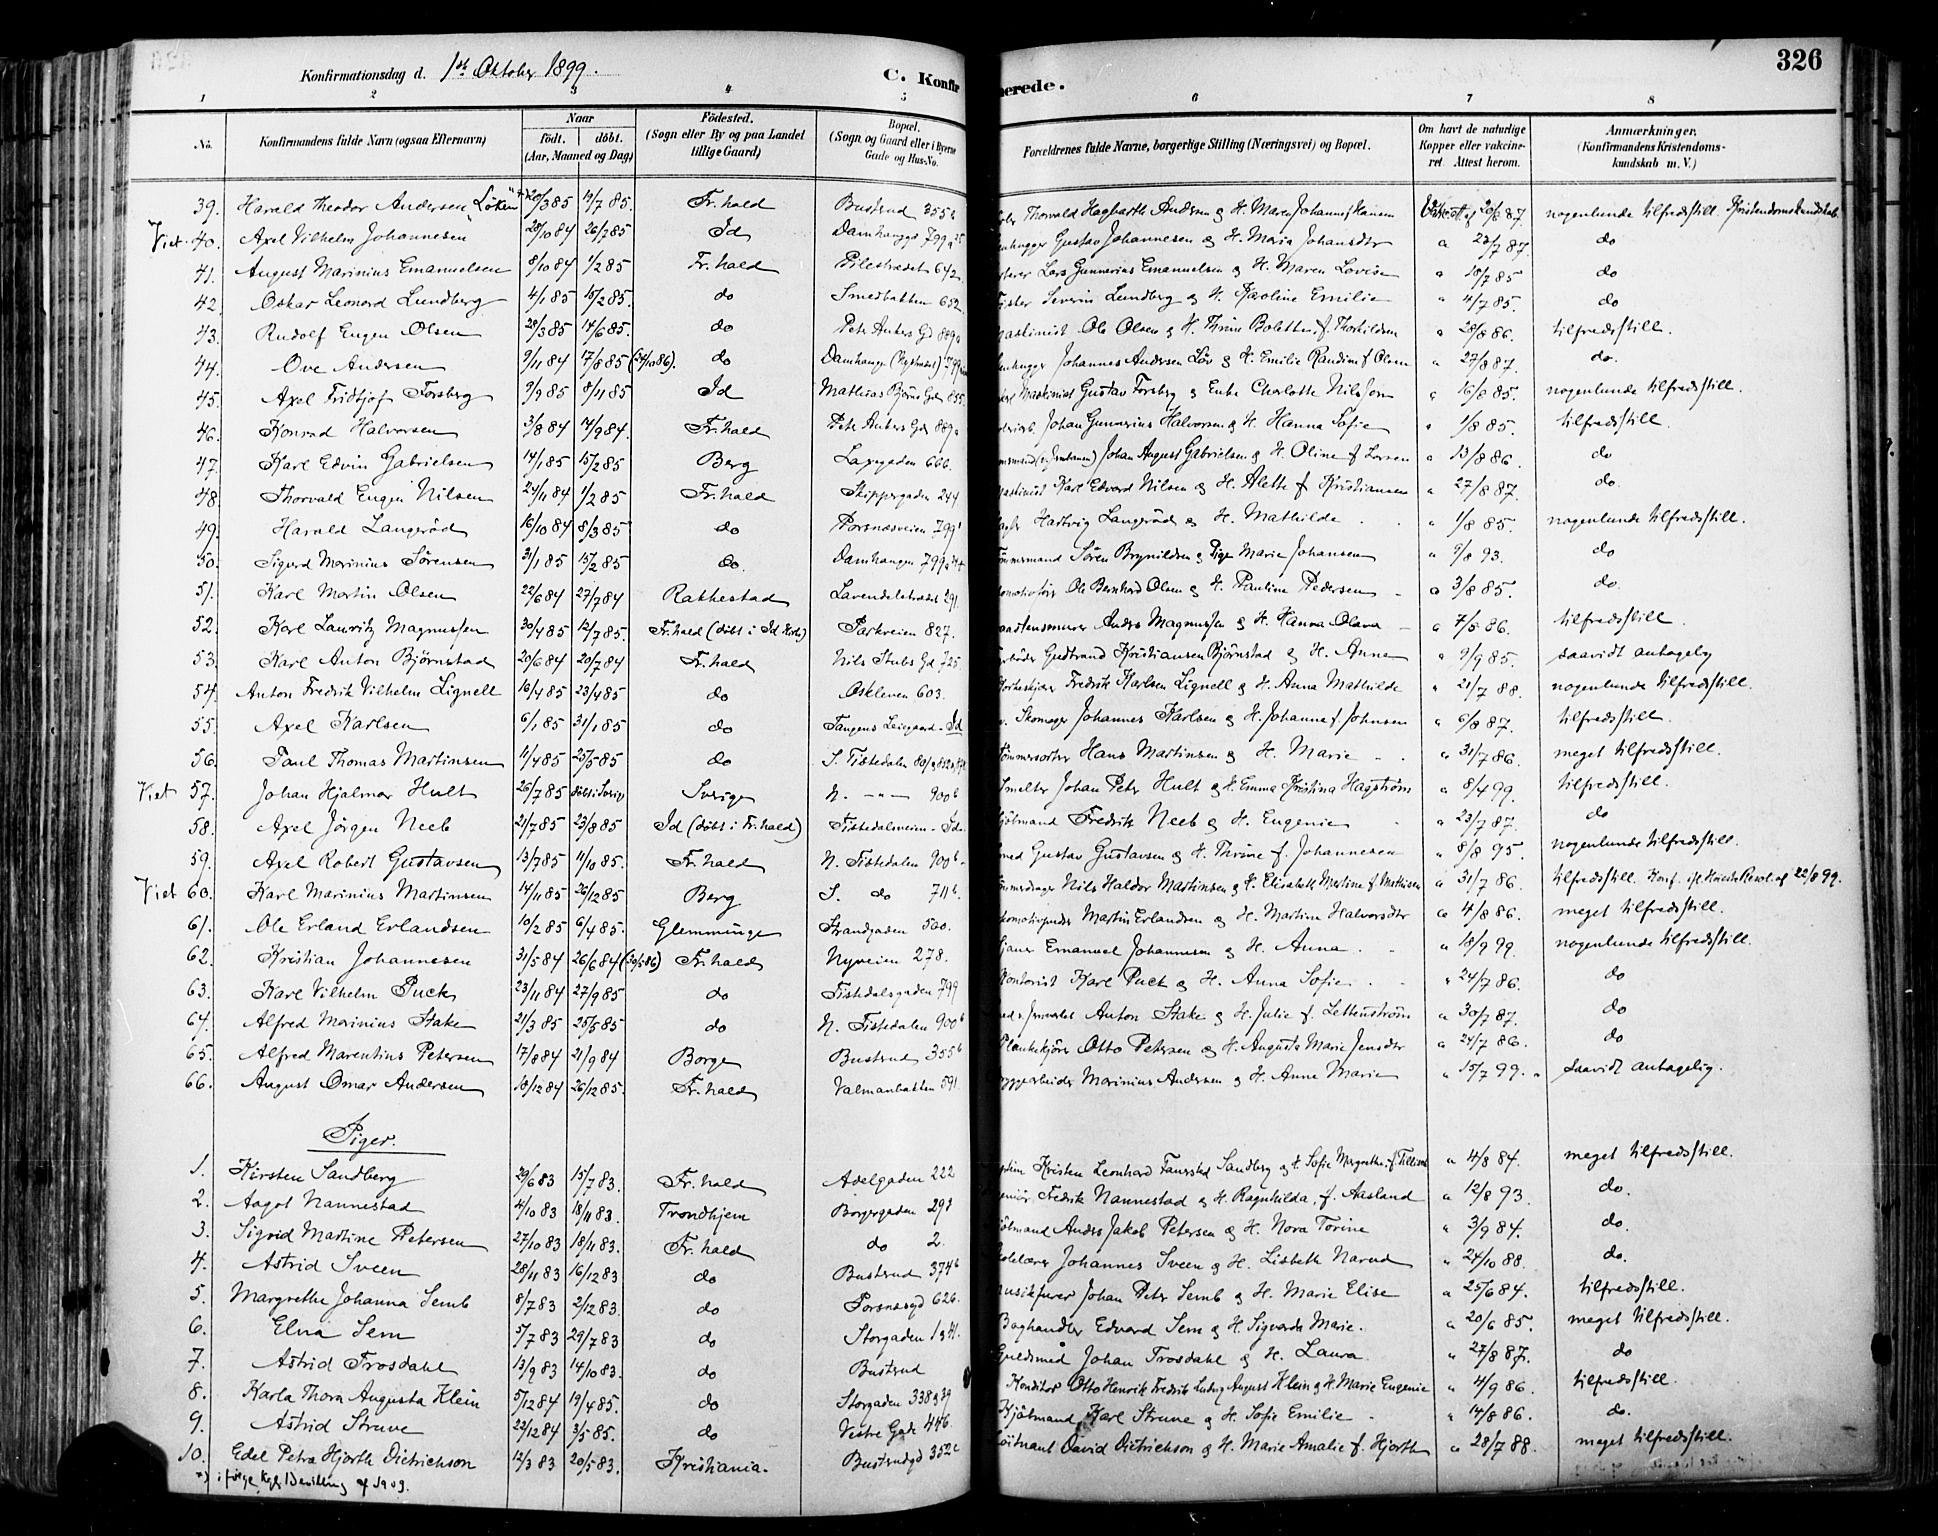 326
Konfirmationsdag d. 1ste Oktober 1899.
C. Konfirmerede.
1 2 3 4 5 6 7 8
No. Konfirmandens fulde Navn (ogsaa Efternavn) Naar født. døbt. (Aar, Maaned og Dag) Fødested. (Sogn eller By og paa Landet tillige Gaard) Bopæl. (Sogn og Gaard eller i Byerne Gade og Hus-No. Forældrenes fulde Navne, borgerlige Stilling (Næringsvei) og Bopæl. Om havt de naturlige Kopper eller vakcineret. Attest herom. Anmærkninger. (Konfirmandens Kristendomskundskab m. V.)
39. Harald Theodor Andersen Löken 20/3 85 12/7 85. Fr.hald Busterud 355 Thorvald Hagbarth Andersen & H. Maren 20/6 87. nogenlunde tilfredsstill. Kristendomskundskab
Viet 40. Axel Vilhelm Johannesen 28/10 84 26/7 85 Id Damhaugen 799 Gustav Johannesen & H. Maria Johansdtr " 23/7 87. do
41. August Marinius Emanuelsen 8/10 84 1/2 85 Fr.hald Pilestrædet 642 Lars Gunnerius Emanuelsen & H. Maren Lovise " 18/7 85 do
42 Oskar Leonord Lundberg 4/1 85 15/2 85. do Smedbakken 652 Severin Lundberg & H. Karoline Emilie " 4/7 85. do
43. Rudolf Eugen Olsen 28/3 85 14/6 85. do Petr Ankers Gd 889 Maskinist Ole Olsen & H. Thrine Bolette f. Thorkildsen " 28/8 86. tilfredsstill.
44. Ove Andersen 9/11 84 17/8 85 (24/10 86). do Damhaugen 799 Johannes Andersen Löv & H. Emilie Randine f Olsen " 27/8 87. do.
45. Axel Fridtjof Forsberg 9/9 85 8/11 85 Id Mathias Bjørns Gd 855. Maskinist Gustav Forsberg & Enke Charlotte Nilsson " 16/8 85. nogenlunde tilfredsstill.
46. Konrad Halvorsen 3/8 84 14/9 84. Fr.hald Petr Ankers Gd 889 Johan Gunnerius Halvorsen & H. Hanna Sofie " 1/8 85. tilfredsstill.
47. Karl Edvin Gabrielsen 14/1 85 15/2 85 Berg Laxegaden 666. Johan August Gabrielsen & H. Oline f Larsen " 13/8 86. do
48. Thorvald Eugen Nilsen 24/11 84 1/2 85 Fr.hald Skippergaden 244 Maskinist Karl Edvard Nilsen & H. Alette f. Kristiansen " 27/8 87. do.
49. Harald Langeröd 16/10 84 8/3 85 do Porsnæsveien 799 Hartvig Langeröd & H. Mathilde " 1/8 85. nogenlunde tilfredsstill.
50. Sigurd Marinius Sørensen 31/1 85 15/2 85 do. Damhaugen 799 Tömmermand Sören Brynildsen & Pige Marie Johansen " 9/8 93. do
51. Karl Martin Olsen 22/6 84 27/7 84 Rakkestad Lavendelstrædet 291. Lokomotivförer Ole Bernhard Olsen & H. Pauline Pedersen " 3/8 85. do.
52. Karl Lauritz Magnussen 30/4 85 12/7 85. Fr.hald (döbt i Id Kirke) Parkveien 827. Andrs Magnussen & H. Hanna Olava " 7/5 86. tilfredsstill.
53. Karl Anton Bjørnstad 20/6 84 20/7 84 Fr.hald Nils Stubs Gd 725 Gudbrand Kristiansen Bjørnstad & H. Anne " 9/9 85. saavidt antagelig
54. Anton Fredrik Vilhelm Lignell 16/4 85 23/4 85 do Oskleven 603. Fredrik Karlsen Lignell & H. Anna Mathilde " 21/7 88. nogenlunde tilfredsstill.
55. Axel Karlsen 6/1 85 31/1 85 do Tangens Leiegaard - Id Skomager Johannes Karlsen & H. Johanne f. Johnsen " 6/8 87. tilfredsstill.
56. Paul Thomas Martinsen 11/4 85 25/5 85 do S. Tistedalen Tömmersorter Hans Martinsen & H. Marie " 31/7 86. meget tilfredsstill.
Viet 57. Johan Hjalmar Hult 26/7 85 döbt i Sverige Sverige N. — " — 900b Smelter Johan Peter Hult & H. Emma Kristina Hagström " 8/4 99. tilfredsstill.
58. Axel Jörgen Neeb 21/7 85 23/8 85 Id (döbt i Fr.hald) Tistedalsveien - Id. Kjöbmand Fredrik Neeb & H. Eugenie " 23/7 87. do
59. Axel Robert Gustavsen 13/7 85 11/10 85. Fr.hald N. Tistedalen 900b Smed Gustav Gustavsen & H. Thrine f. Johannesen " 8/8 95. nogenlunde tilfredsstill.
Viet 60. Karl Marinius Martinsen 14/11 85 26/12 85 Berg S. do 711b Nils Haldor Martinsen & H. Elisabeth Martine f. Mathisen " 31/7 86. tilfredsstill. Konf. 22/8 99.
61. Ole Erland Erlandsen 10/2 85 6/4 85. Glemminge Strandgaden 500. Martin Erlandsen & H. Martine Halvorsdtr " 4/8 86. meget tilfredsstill.
62. Kristian Johannesen 31/5 84 26/6 84 (30/5 86) Fr.hald Nyveien 278. Emanuel Johannesen & H. Anna " 18/9 99. nogenlunde tilfredsstill.
63. Karl Vilhelm Puck 23/11 84 27/9 85 do Tistedalsgaden 799 Kontorist Karl Puck & H. Anna Sofie " 24/7 86. do
64. Alfred Marinius Stake 21/3 85 25/5 85 do N. Tistedalen 900b Anton Stake & H. Julie f. Lettenström " 30/7 87. do
65. Alfred Marentius Petersen 17/8 84 21/9 84 Borge Busterud 355b Plankekjörer Otto Petersen & H. Augusta Marie Jensdtr " 24/7 86. do
66. August Omar Andersen 18/12 84 26/12 85. Fr.hald Valmanbakken 591 Marinius Andersen & H. Anne Marie " 15/7 99. saavidt antagelig.
Piger.
1. Kirsten Sandberg 29/6 83 15/7 83. Fr.hald Adelgaden 222 Kristen Leonhard Sandberg & H. Sofie Magrethe f. " 4/8 84. meget tilfredsstill.
2. Aagot Nannestad 4/10 83 18/11 83. Trondhjem Borgergaden 293 Fredrik Nannestad & H. Ragnhilda f. Aasland " 12/8 93. do.
3. Sigrid Martine Petersen 27/10 83 18/11 83. Fr.hald do 2. Kjöbmand Andrs Jakob Petersen & H. Nora Torine " 3/9 84. do.
4. Astrid Sveen 28/11 83 16/12 83 do Busterud 374b Johannes Sveen & H. Lisbeth Narud " 24/10 88. do.
5. Margrethe Johanna Semb 8/7 83 2/12 83. do Porsnæsgd 626. Johan Petr Semb & H. Marie Elise " 25/6 84. tilfredsstill.
6. Elna Sem 5/7 83 29/7 83 do Storgaden Boghandler Edvard Sem & H. Sigvarda Marie. " 20/6 85. meget tilfredsstill.
7. Astrid Trosdahl 13/9 83 14/10 83. do Busterud Guldsmed Johan Trosdahl & H. Laura " 27/8 87. do
8. Karla Thora Augusta Klein 5/12 84 19/4 85. do Storgaden 338 & 39 Konditor Otto Henrik Fredrik Ludvig August Klein & H. Marie Eugenie " 4/9 86. tilfredsstill.
9. Astrid Struve 22/12 84 3/5 85. do Vestre Gade 446. Kjöbmand Karl Struve & H. Sofie Emilie " 14/8 86. do.
10. Edel Petra Hjorth Dietrichson 12/3 83 20/5 83. Kristiania. Busterudgd 352c Löitnant David Dietrichson & H. Marie Amalie f. Hjorth " 28/7 88. meget tilfredsstill.
*) ifølge Kgl. Bevilling af 1909.